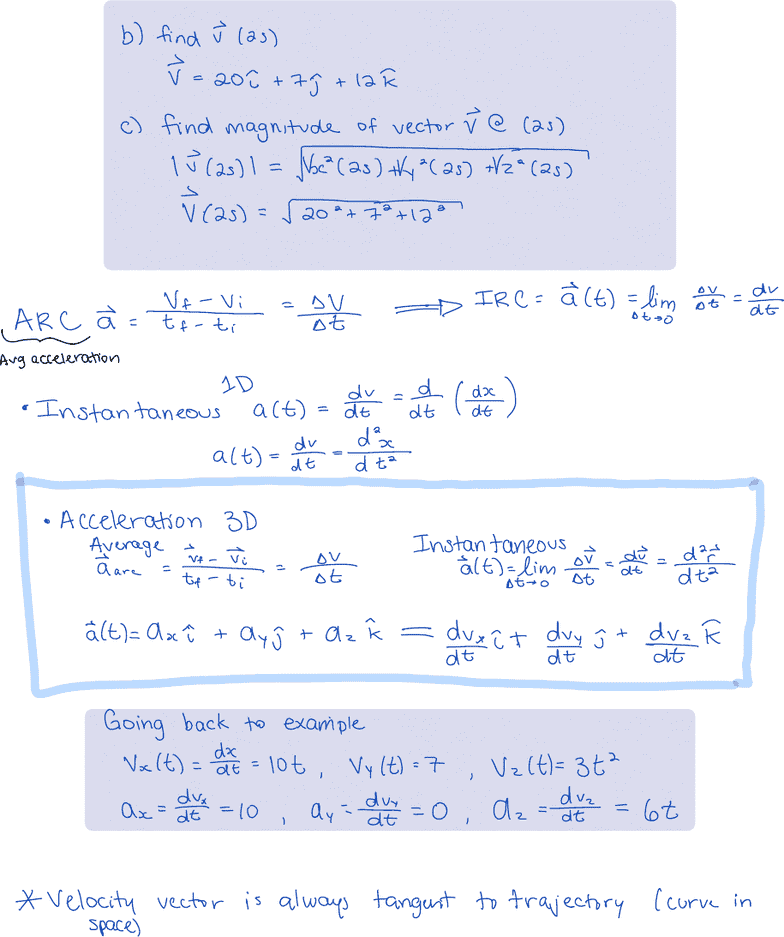 b) find v⃗ (2s)
v⃗ = 20î + 7ĵ + 12k̂
c) find magnitude of vector v⃗ @ (2s)
|v⃗(2s)| = √(Vx²(2s) + Vy²(2s) + Vz²(2s))
v⃗(2s) = √(20² + 7² + 12²)
ARC a⃗ = (Vf - Vi)/(tf - ti) = ΔV/Δt ⟹ IRC = a⃗(t) = lim Δt→0 Δv/Δt = dv/dt
Avg acceleration
1D
• Instantaneous a(t) = dv/dt = d/dt (dx/dt)
a(t) = dv/dt = d²x/dt²
• Acceleration 3D
Average a⃗arc = (v⃗f - v⃗i)/(tf - ti) = ΔV/Δt
Instantaneous a⃗(t) = lim Δt→0 Δv⃗/Δt = dv⃗/dt = d²r⃗/dt²
a⃗(t) = axî + ayĵ + az k̂ = dvx/dt î + dvy/dt ĵ + dvz/dt k̂
Going back to example
Vx(t) = dx/dt = 10t , Vy(t) = 7 , Vz(t) = 3t²
ax = dvx/dt = 10 , ay = dvy/dt = 0 , az = dvz/dt = 6t
* Velocity vector is always tangent to trajectory (curve in
space)